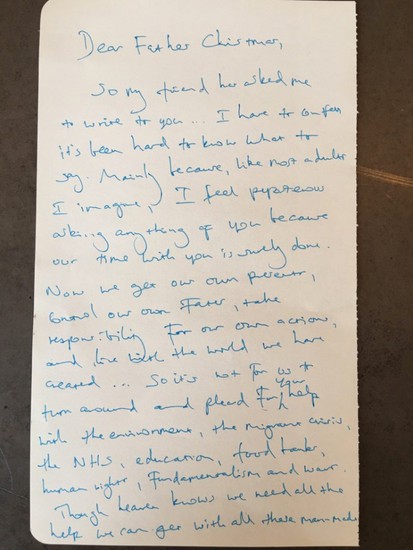 Dear Father Christmas,
So my friend has asked me
to write to you... I have to confess
it's been hard to know what to
say. Mainly because, like most adults
I imagine, I feel
asking anything of you because
our time with you is surely done.
Now we get our own presents,
control our own Fates, take
responsibility For our own actions,
and live with the world we have
created... So it's not For us to
turn around and plead For your help
with the environment, the migrant crisis,
the NHS, education, food banks,
human rights, Fundamentalism and war.
Though heaven knows we need all the
help we can get with all these man-made